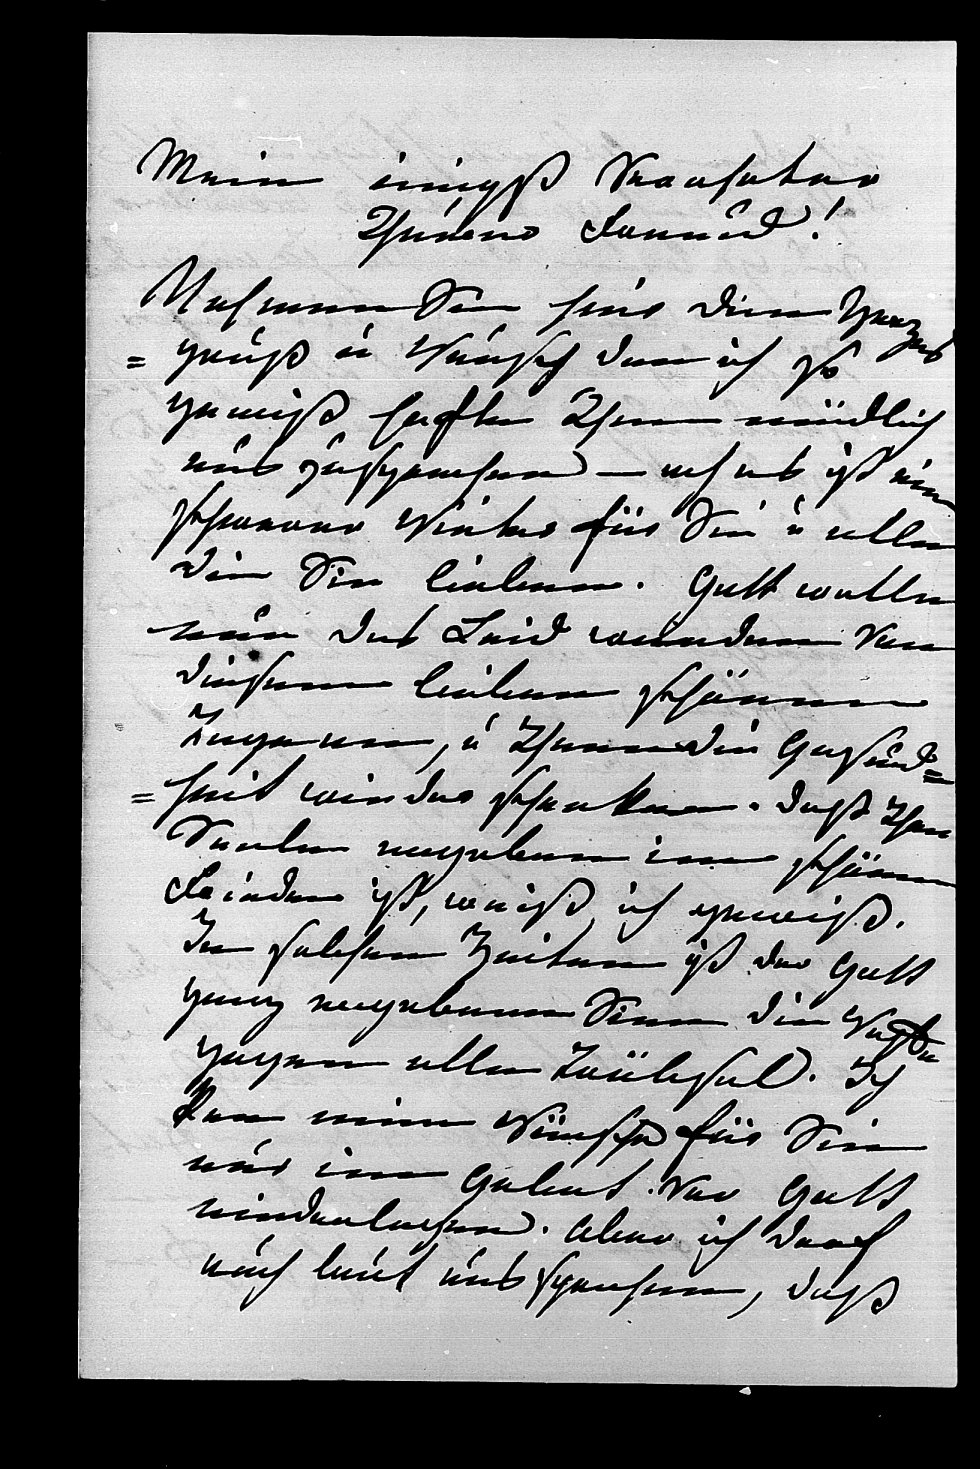 Mein innigst Verehrter
Theurer Freund!
Nehmen Sie hier den Herzens
= gruß u Wunsch den ich so
gewiß hoffte Ihnen mündlich
aus zusprechen — ach es ist ein
schwerer Winter für Sie u alle
die Sie lieben. Gott wolle
nun das Leid wenden von
diesem lieben schönen
, u Ihnen die Gesund=
= heit wieder schenken. Daß Ihre
Seele ergeben im schönen
Frieden ist, weiß ich gewiß.
In solchen Zeiten ist der Gott
ganz ergebene Sinn die Veste
gegen alle Trübsal. Ich
kan meine Wünsche für Sie
nur im Gebet vor Gott
niederlegen. Aber ich darf
auch laut aussprechen, daß